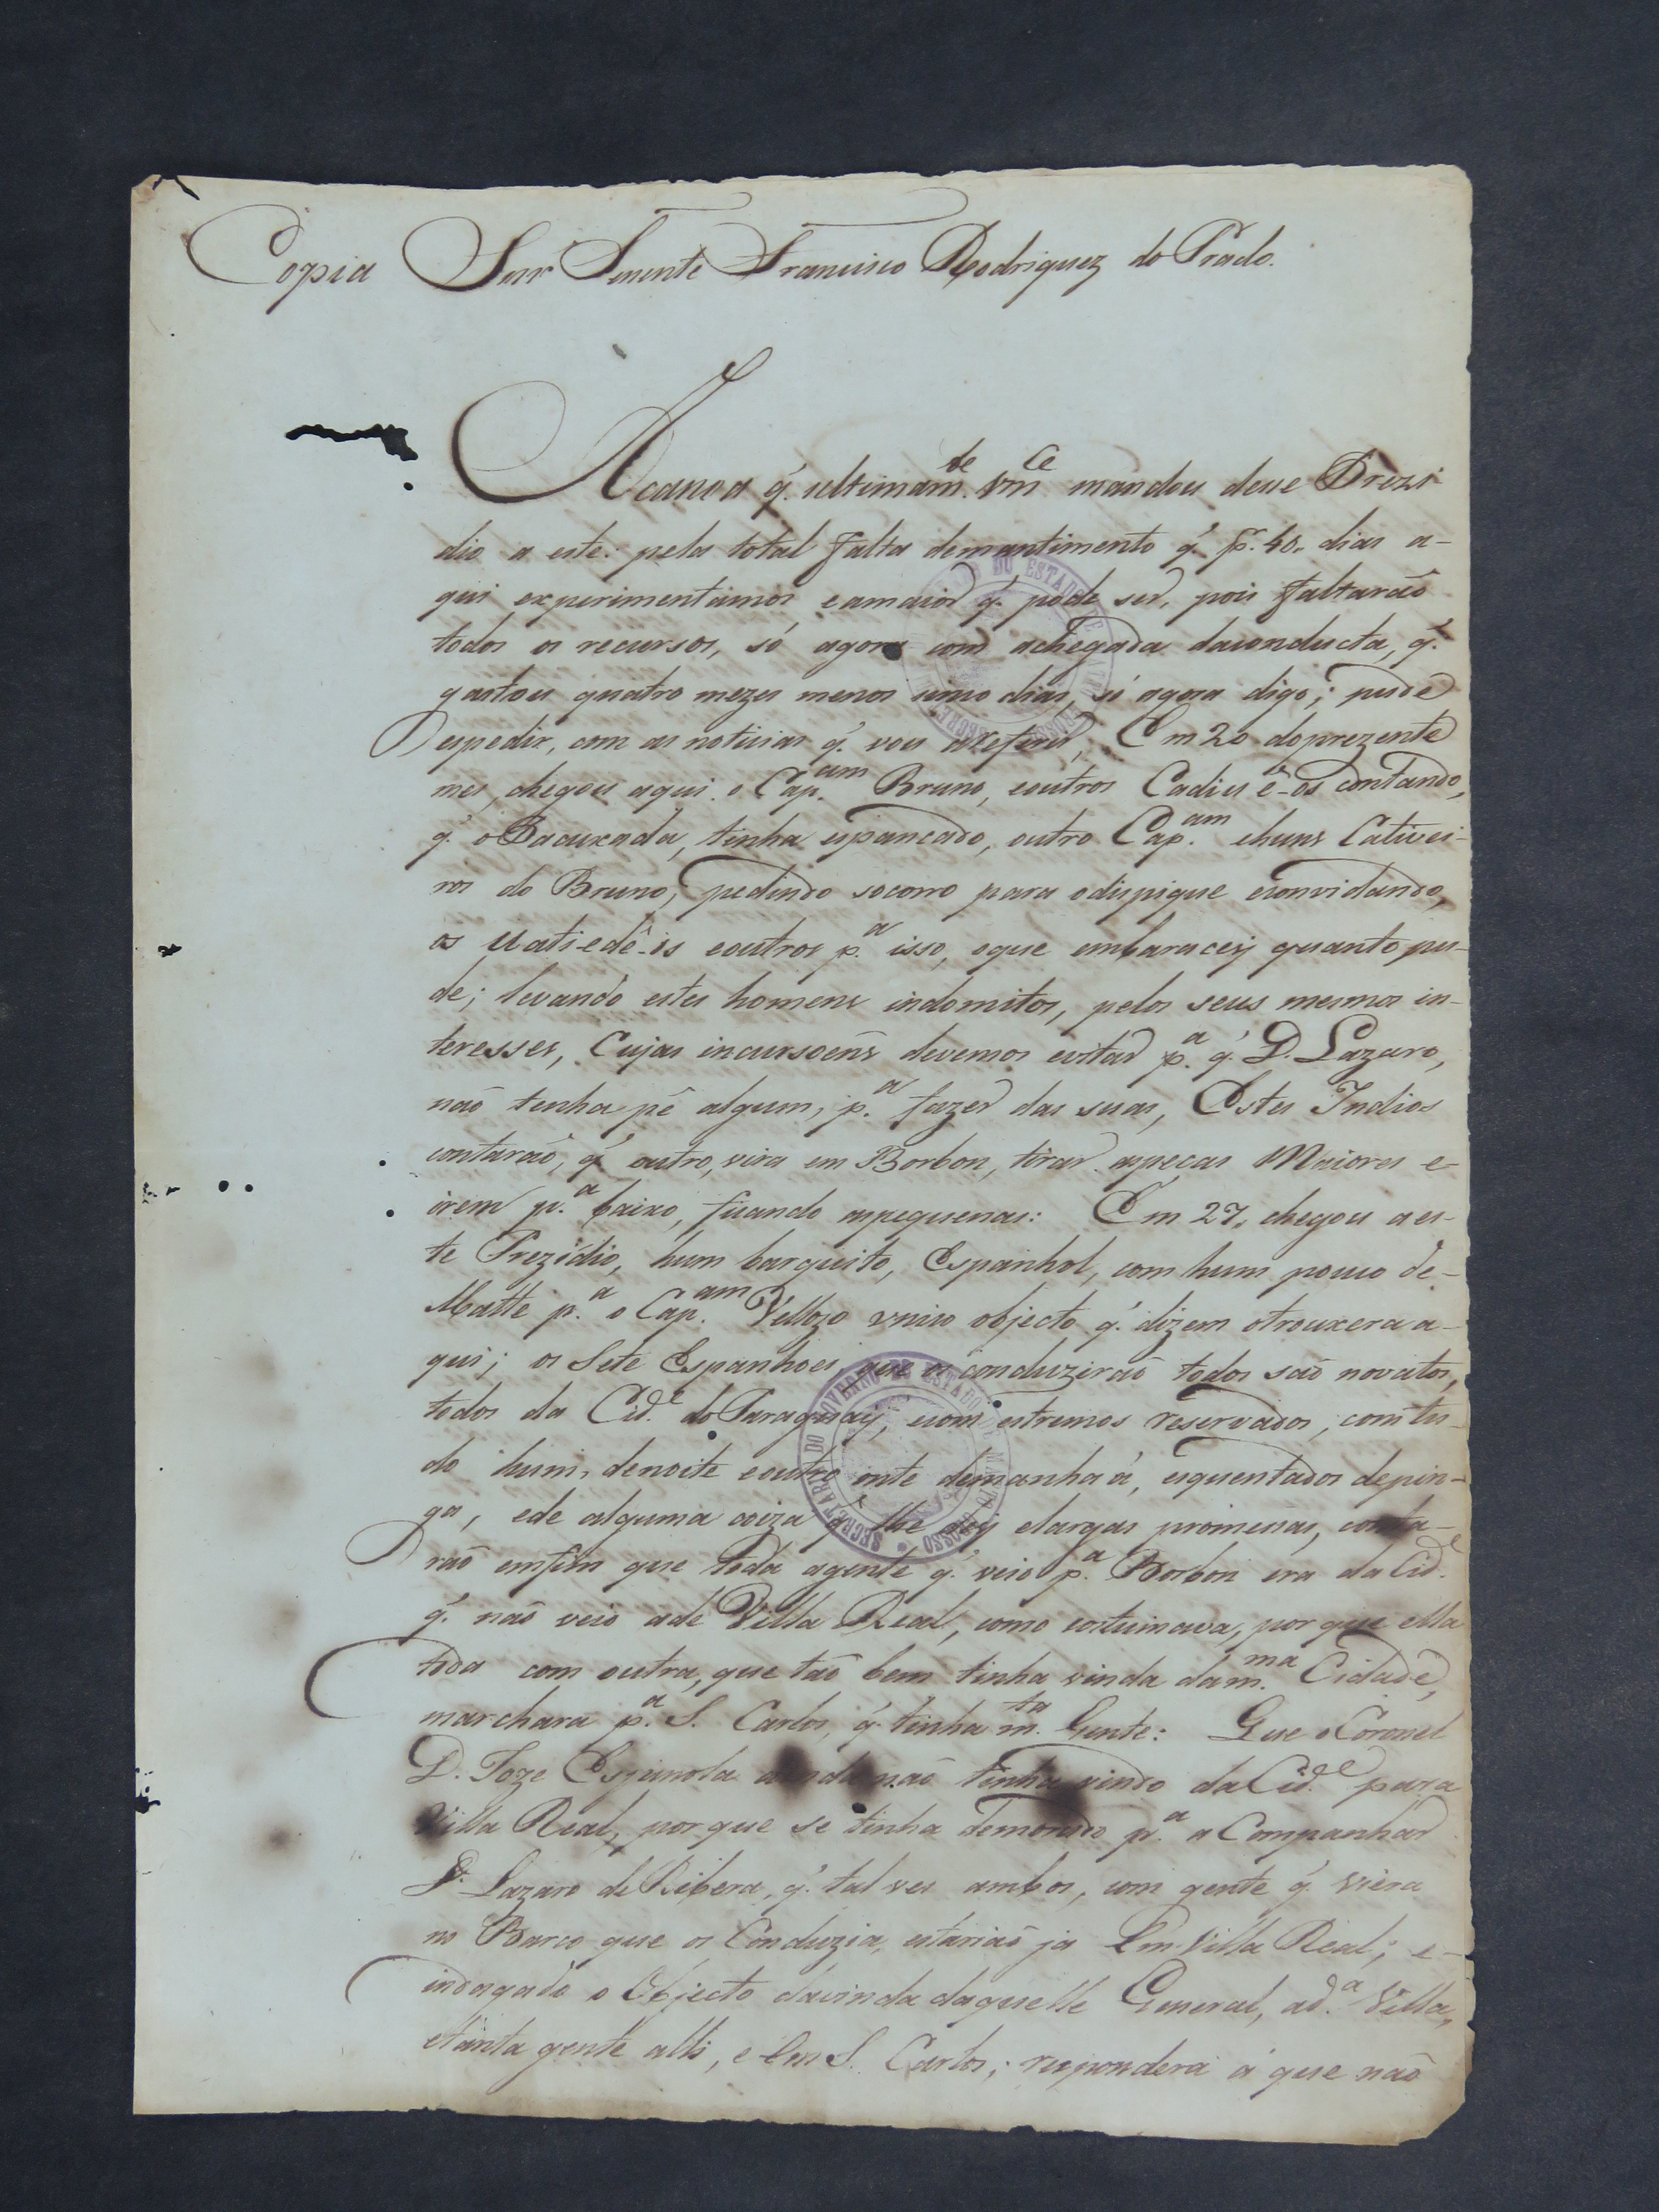 Copia Snr Tenente Francisco Rodriguez do Prado.
Acanoa q̃. ultimam.de Vm.ce mandou desse Prezi
dio a este: pela total falta demantimento q̃. p̃. 40,, dias a-
qui experimentamos, eamaior q̃. pode ser, pois faltaraõ
todos os recursos, só agora com achegada daconducta, q̃.
gastou quatro mezes menos sinco dias, só agora digo; pude
espedir, com as noticias q̃. vou areferir, Em 20 doprezente
mes, chegou aqui o Cap.am Bruno, eoutros Cadiu ê-os contando,
q̃. o tinha espancado, outro Cap.am ehuns Cativei-
ros do Bruno, pedindo socorro para odispique econvidando,
os Uati-edê-os eoutros p.a isso, oque embaracey quanto pu-
de; levando estes homens indomitos, pelos seus mesmos in-
teresses, Cujas incursoẽns devemos evitar p.a q̃. D. Lazaro,
naõ tenha pê algum, p.a fazer das suas, Estes Indios
contaraõ, q̃ outro, vira em Borbon, tirar aspecas Maiores e-
irem p.a baixo, ficando aspequenas: Em 27,, chegou a es-
te Prezidio, hum barquito, Espanhol, com hum pouco de-
Matte p.a o Cap.am Vellozo unico objecto q̃. dizem otrouxera a-
qui; os Sete Espanhoes, que os conduziraõ todos saõ novatos,
todos da Cid.e do Paraguay, ecom estremos reservados, comtu-
do hum, denoite eoutro onte demanhaã, esquentados depin-
ga, ede alguma coiza q̃ lhe dey elargas promessas, conta-
raõ emfim que toda agente q̃. veio p.a Borbon era da Cid.e
q̃. naõ veio ade Villa Real, como costumava, por que ella
toda com outra, que taõ bem tinha vinda dam.ma Cidade,
marchara p.a S. Carlos, q̃. tinha m.ta Gente: Que o Coronel
D. Joze Espinola ainda naõ tinha vindo da Cid.e para
Villa Real, por que se tinha demorado p.a a Companhar
D. Lazaro de Ribera, q̃. tal ves ambos, com gente q̃. viera
no Barco que os Conduzia, estariaõ ja Em Villa Real; e-
indagado o Objecto davinda daquelle General, ad.a Villa,
etanta gente alli, e Em S. Carlos; respondera ã que naõ
SECRETARIA DO GOVERNO DO ESTADO DE MATTO GROSSO
SECRETARIA DO GOVERNO DO ESTADO DE MATTO GROSSO